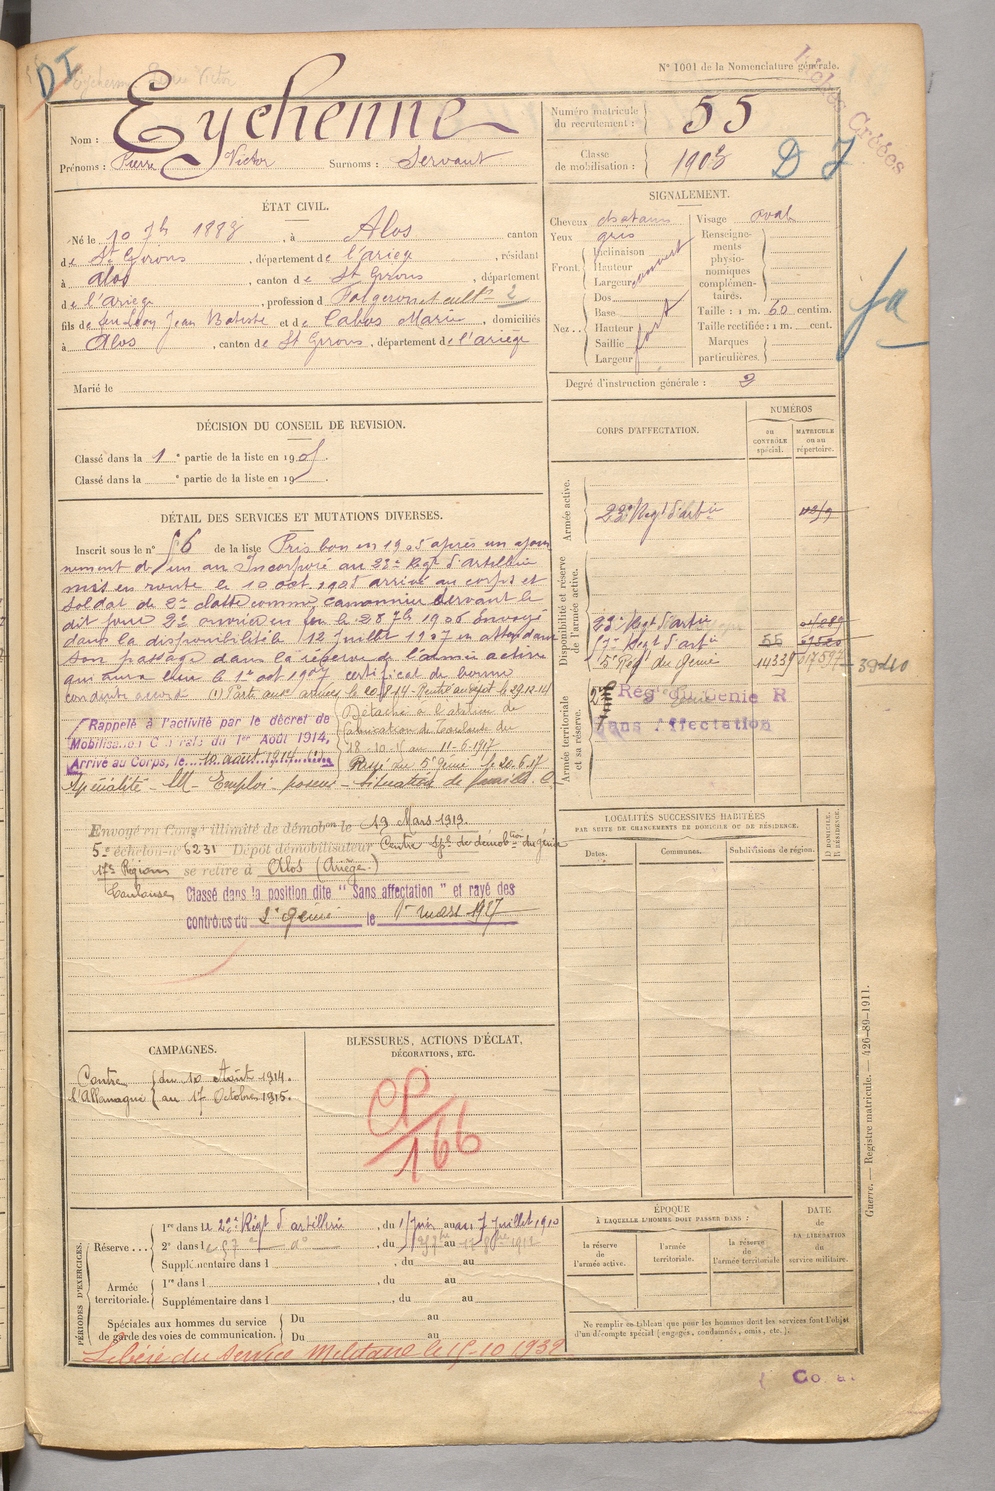 DI
Eychenne Pierre Victor
N° 1001 de la Nomenclature générale.
Nom : Eychenne
Prénoms : Pierre Victor Surnoms : Servant
Numéro matricule du recrutement : 55
Classe de mobilisation : 1903
DI
ÉTAT CIVIL.
Né le 10 1883, à Alos canton
de St Girons, département de l'ariège, résidant
à alos, canton de St Girons, département
de l'ariège, profession de Forgeron et cultr 2
fils de feu Léon Jean Batiste et de Cabos Marie, domiciliés
à Alos, canton de St Girons, département de l'ariège
Marié le
SIGNALEMENT.
Cheveux chatains
Yeux gris
Front. Inclinaison
Hauteur
Largeur
Nez. Dos
Base
Hauteur
Saillie
Largeur
fort
Visage oval
Renseignements physionomiques complémentaires.
Taille : 1 m. 60 centim.
Taille rectifiée : 1 m. cent.
Marques particulières.
fa
Degré d'instruction générale : 3
DÉCISION DU CONSEIL DE REVISION.
Classé dans la 1e partie de la liste en 1905.
Classé dans la e partie de la liste en 19
CORPS D'AFFECTATION.
NUMÉROS
au CONTRÔLE spécial.
MATRICULE ou au répertoire.
Armée active.
23e Regt d'artie
Disponibilité et réserve de l'armée active.
23e Regt d'artie
57e Regt d'artie 55
5e Rég du génie 14339 39410
Armée territoriale et sa réserve.
2e Rég du Génie R
Sans Affectation
DÉTAIL DES SERVICES ET MUTATIONS DIVERSES.
Inscrit sous le n° 56 de la liste Pris bon en 1905 après un ajour
nement de un an Incorporé au 23e Régt d'artillerie
mis en route le 10 oct. 1905 arrivé au corps et
soldat de 2e classe comme canonnier servant le
dit jour 2e ouvrier en fer le 28 7bre 1906 Envoyé
dans la disponibilité le 12 juillet 1907 en attendant
son passage dans la réserve de l'armée active
qui aura lieu le 1er oct 1907 certificat de bonne
conduite accordé (1) Parti aux armées le 20-8-14 Rentré au dépôt le 29-12-14
Rappelé à l'activité par le décret de
Mobilisation Générale du 1er Août 1914,
Arrivé au Corps, le 10 août 1914 (1)
Détaché à l'atelier de
fabrication de Toulouse du
18-10-15 au 11-6-1917
Passé au 5e génie le 20-6-17
Spécialité - M - Emploi - poseur - Situation de famille. C.
Envoyé en Congé illimité de démobon le 13 Mars 1919.
5e échelon n° 6231 Dépôt démobilisateur Centre Spl de démobtion du génie
17e Région se retire à Alos (Ariège)
Toulouse
Classé dans la position dite "Sans affectation" et rayé des
contrôles du 2e génie le 1er mars 1927
LOCALITÉS SUCCESSIVES HABITÉES
PAR SUITE DE CHANGEMENTS DE DOMICILE OU DE RÉSIDENCE.
Dates. Communes. Subdivisions de région. D. DOMICILE. R. RÉSIDENCE.
CAMPAGNES.
Contre l'Allemagne du 10 Août 1914.
au 17 Octobre 1915.
BLESSURES, ACTIONS D'ÉCLAT,
DÉCORATIONS, ETC.
CP/166
PÉRIODES D'EXERCICES.
Réserve....
1re dans le 23e Régt d'artillerie, du 1 Juin au 7 Juillet 1910
2e dans le 57e do, du au
Supplémentaire dans l, du au
Armée territoriale.
1re dans l, du au
Supplémentaire dans l, du au
Spéciales aux hommes du service de garde des voies de communication.
Du au
Du au
ÉPOQUE
À LAQUELLE L'HOMME DOIT PASSER DANS :
la réserve de l'armée active.
l'armée territoriale.
la réserve de l'armée territoriale
DATE de LA LIBÉRATION du service militaire.
Ne remplir ce tableau que pour les hommes dont les services font l'objet
d'un décompte spécial (engagés, condamnés, omis, etc.).
Libéré du Service Militaire le 15-10 1932
Guerre. — Registre matricule. — 426-89-1911.